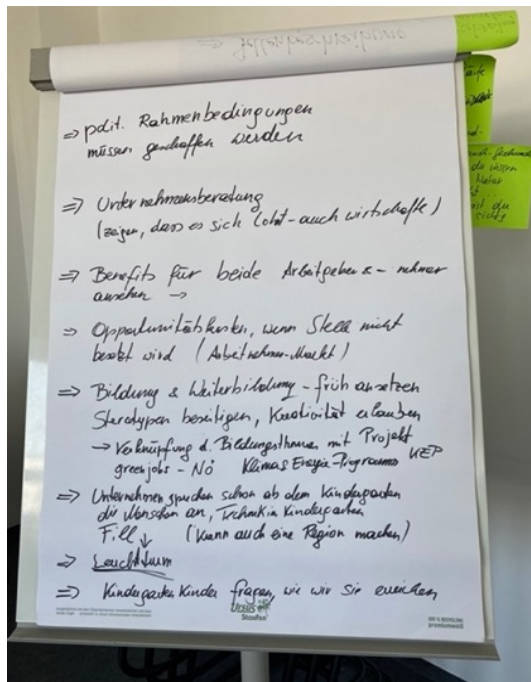 => Stellenbeschreibung
=> polit. Rahmenbedingungen
müssen geschaffen werden
=> Unternehmensberatung
(zeigen, dass es sich lohnt - auch wirtschaftl)
=> Benefits für beide Arbeitgeber & - nehmer
ansehen ->
=> Opportunitätskosten, wenn Stelle nicht
besetzt wird (Arbeitnehmer-Markt)
=> Bildung & Weiterbildung - früh ansetzen
Stereotypen beseitigen, Kreativität erlauben
-> Verknüpfung d. Bildungsthemen mit Projekt
greenjobs - NÖ Klima & Energie-Programm KEP
=> Unternehmen sprechen schon ab dem Kindergarten
die Menschen an, Technik in Kindergarten
Fill ↓ (kann auch eine Region machen)
=> Leuchtturm
=> Kindergarten Kinder fragen, wie wir sie erreichen
URSUS
Staufen
100 % RECYCLING
premiumweiß